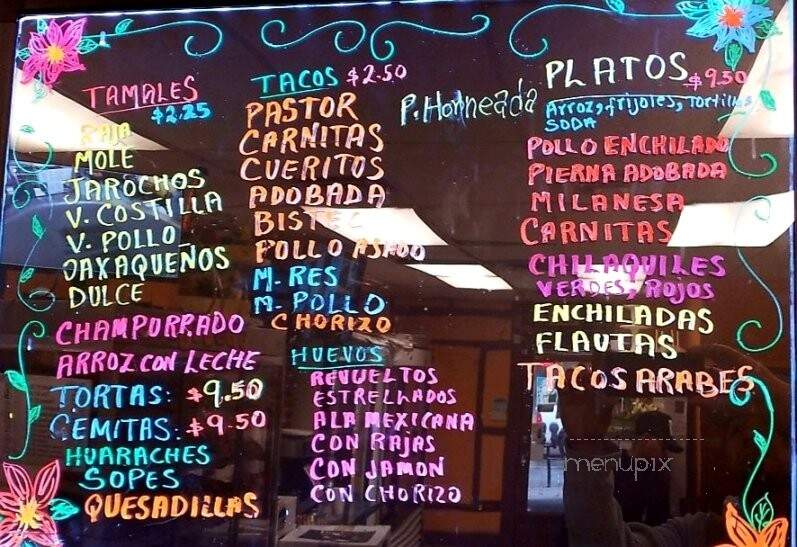 TAMALES
$2.25
RAJA
MOLE
JAROCHOS
V. COSTILLA
V. POLLO
OAXAQUEÑOS
DULCE
CHAMPURRADO
ARROZ CON LECHE
TORTAS: $9.50
CEMITAS: $9.50
HUARACHES
SOPES
QUESADILLAS
TACOS $2.50
PASTOR
CARNITAS
CUERITOS
ADOBADA
BISTEC
POLLO ASADO
M. RES
M. POLLO
CHORIZO
HUEVOS
REVUELTOS
ESTRELLADOS
A LA MEXICANA
CON RAJAS
CON JAMON
CON CHORIZO
P. Horneada
PLATOS $9.50
Arroz, frijoles, Tortillas
SODA
POLLO ENCHILADO
PIERNA ADOBADA
MILANESA
CARNITAS
CHILAQUILES
VERDES, ROJOS
ENCHILADAS
FLAUTAS
TACOS ARABES
menupix